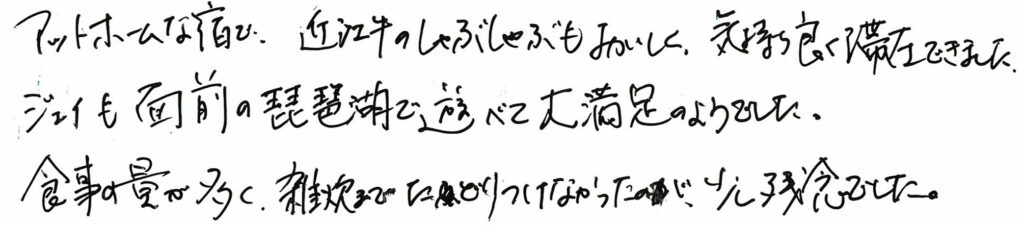 アットホームな宿で、近江牛のしゃぶしゃぶもおいしく、気持ち良く滞在できました。
ジェイも面前の琵琶湖で遊べて大満足のようでした。
食事の量が多く、雑炊までたどりつけなかったのが、少し残念でした。